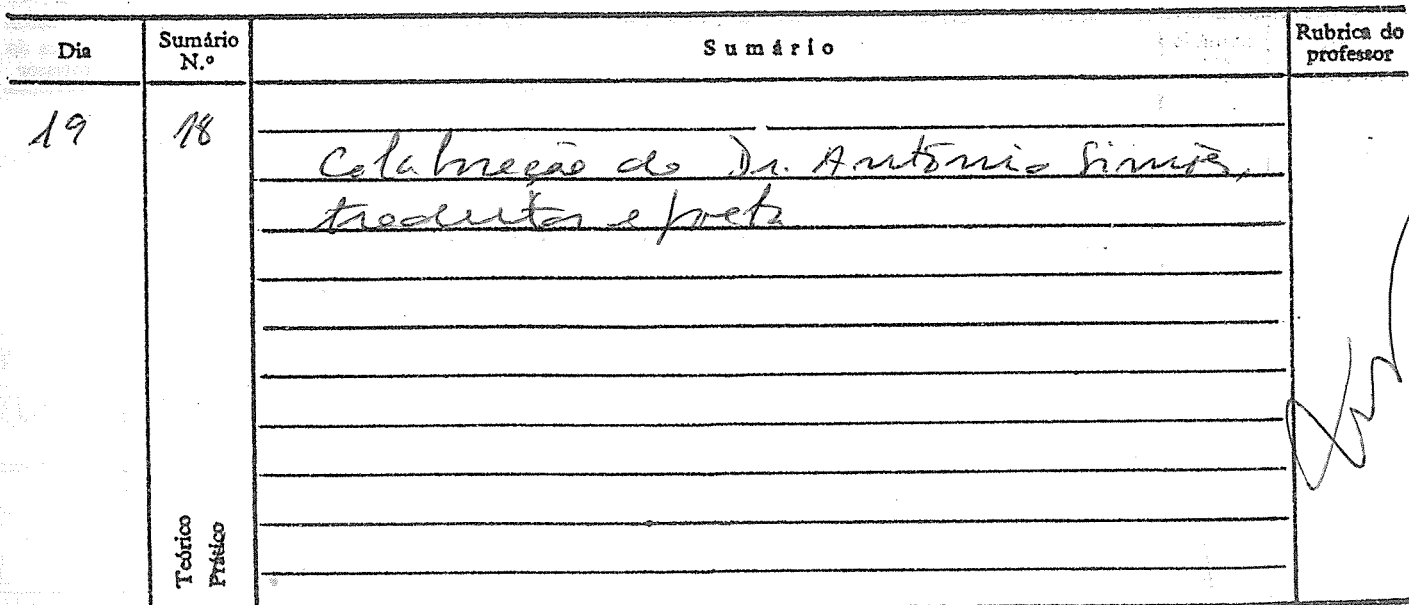 Dia
Sumário N.º
Sumário
Rubrica do professor
19
18
Colaboração do Dr. António Simões,
tradutor e poeta
Teórico
Prático